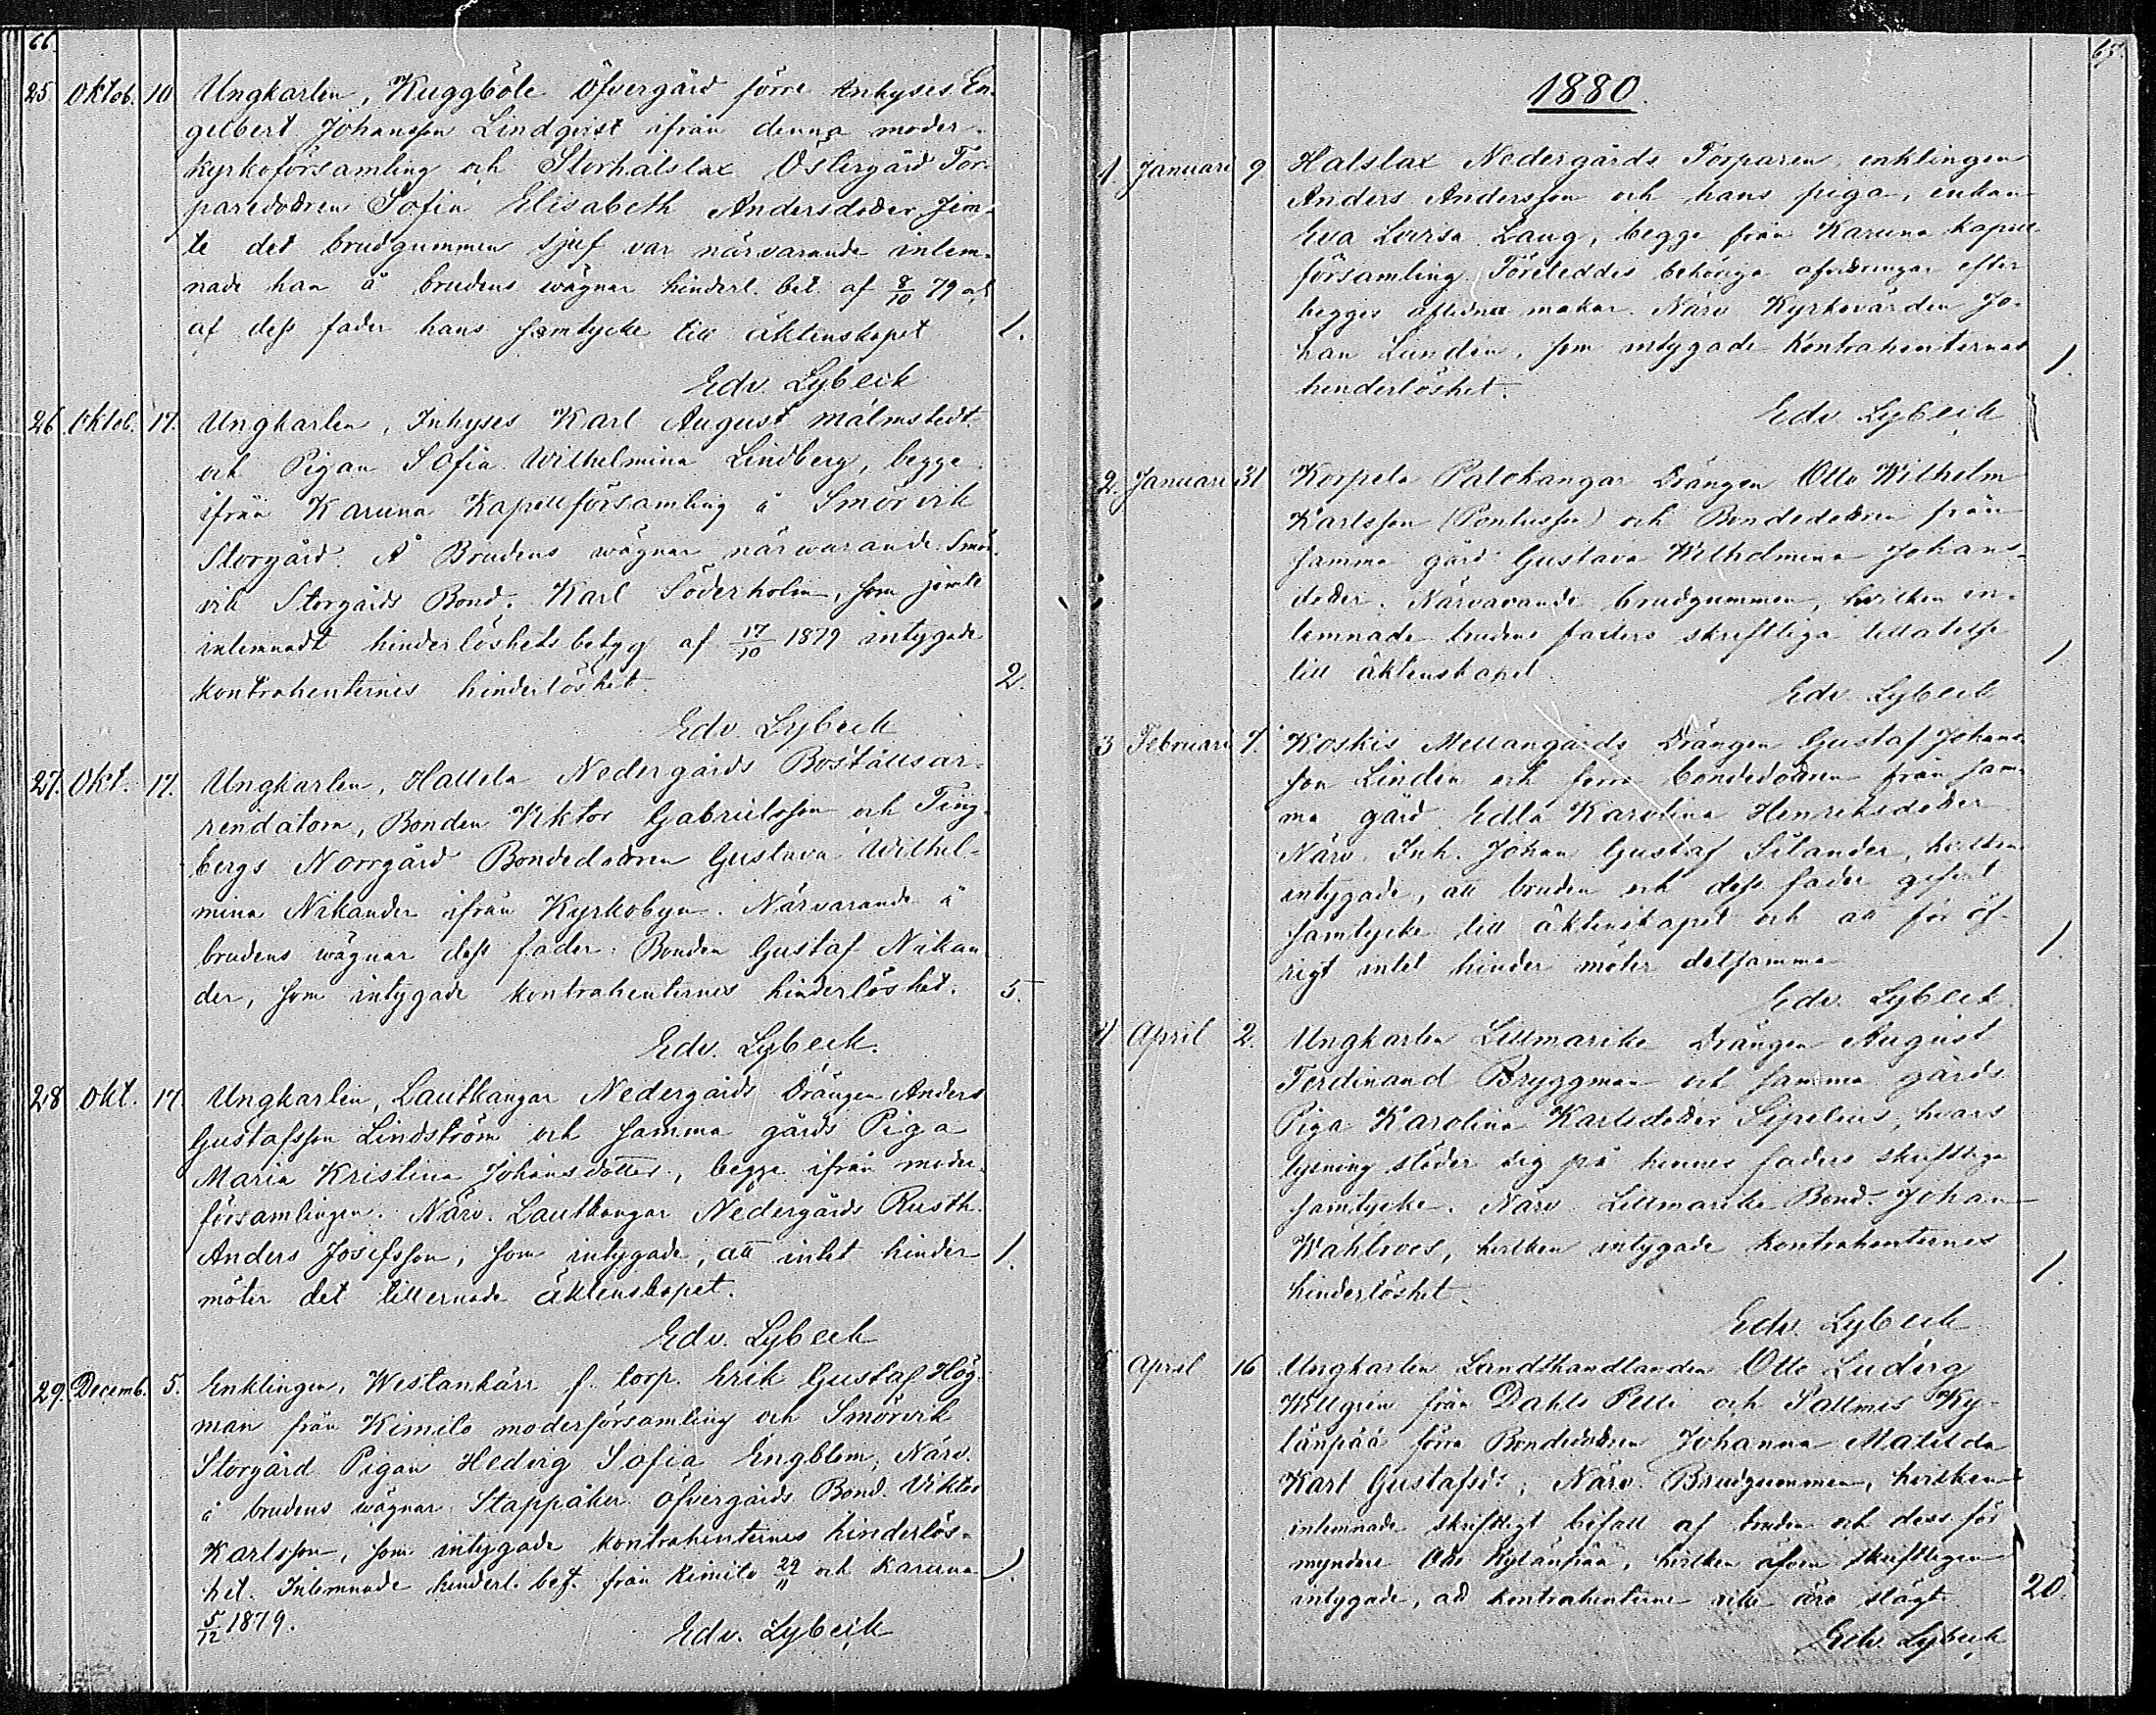 66.
25. Oktob. 10 Ungkarlen, Kuggböle Öfvergård förre Inhyses En-
gelbert Johansson Lindqvist ifrån denna moder-
kyrkoförsamling och Storhalslax Östergård Tor-
paredottren Sofia Elisabeth Andersdotter. Jem-
te det brudgummen sjelf var närvarande inlem-
nade han å brudens wägnar hinderl. bet. af 8/10 79 och
af dess fader hans samtycke till äktenskapet 1.
Edv. Lybeck
26. Oktob. 17. Ungkarlen, Inhyses Karl August Malmstedt
och Pigan Sofia Wilhelmina Lindberg, begge
ifrån Karuna Kapellförsamling å Smörvik
Storgård. Å Brudens wägnar närwarande Smör-
vik Storgårds Bond. Karl Söderholm, som jemte
inlemnadt hinderlöshetsbetyg af 17/10 1879 intygade
kontrahenternes hinderlöshet. 2.
Edv. Lybeck
27. Okt. 17. Ungkarlen, Hallela Nedergårds Boställsar-
rendatorn, Bonden Viktor Gabrielsson och Ting-
bergs Norrgård Bondedottren Gustava Wilhel-
mina Nikander ifrån Kyrkobyn. Närvarande å
brudens wägnar dess fader, Bonden Gustaf Nikan-
der, som intygade kontrahenternes hinderlöshet. 5.
Edv. Lybeck.
28 Okt. 17. Ungkarlen, Lautkangar Nedergårds Drängen Anders
Gustafsson Lindström och samma gårds Piga
Maria Kristina Johansdotter, begge ifrån moder-
församlingen. Närv. Lautkangar Nedergårds Rusth.
Anders Josefsson, som intygade, att intet hinder 1.
möter det tillernade äktenskapet.
Edv. Lybeck
29. Decemb. 5. Enklingen, Westankärr f. torp. Erik Gustaf Hög-
man från Kimito moderförsamling och Smörvik
Storgård Pigan Hedvig Sofia Engblom, Närv.
å brudens wägnar Stappåker Öfvergårds Bond. Viktor
Karlsson, som intygade kontrahenternes hinderlös-
het. Inlemnade hinderl. bet. från Kimito 29/11 och Karuna 1.
5/12 1879.
Edv. Lybeck
65.
1880.
1. Januari 9 Halslax Nedergårds Torparen, enklingen
Anders Andersson och hans piga, enkan
Eva Lovisa Lang, begge från Karuna kapell
församling. Företeddes behöriga afvittringar efter
begges aflidna makar. Närv. Kyrkovärden Jo-
han Lundén, som intygade Kontrahenternas 1.
hinderlöshet.
Edv. Lybeck
2. Januari 31 Korpela Palokangar Drängen Otto Wilhelm
Karlsson (Pontusson) och Bondedottren från
samma gård Gustava Wilhelmina Johans-
dotter. Närvarande brudgummen, hvilken in-
lemnade brudens faders skriftliga tillåtelse
till äktenskapet. 1
Edv. Lybeck
3 Februari 7. Koskis Mellangårds Drängen Gustaf Johans-
son Lindén och förra bondedottren från sam-
ma gård Edla Karolina Henriksdotter
Närv. Inh. Johan Gustaf Silander, hvilken
intygade, att bruden och dess fader gifvit
samtycke till äktenskapet och att för öf-
rigt intet hinder möter detsamma 1.
Edv. Lybeck.
4 April 2. Ungkarlen Lillmarike Drängen August
Ferdinand Bryggman och samma gårds
Piga Karolina Karlsdotter Sipelius, hvars
lysning stöder sig på hennes faders skriftliga
samtycke. Närv. Lillmarike Bond. Johan
Wahlroos, hvilken intygade kontrahenternes
hinderlöshet. 1.
Edv. Lybeck
5 April 16 Ungkarlen Landthandlanden Otto Ludvig
Willgren från Dahls Pelli och Pallmis Ky-
länpää förra Bondedottren Johanna Matilda
Karl Gustafsd:, Närv. Brudgummen, hvilken
inlemnade skriftligt bifall af bruden och dess för
myndare Kylänpää, hvilken äfven skriftligen
intygade, att kontrahenterne icke äro slägt 20.
Edv. Lybeck